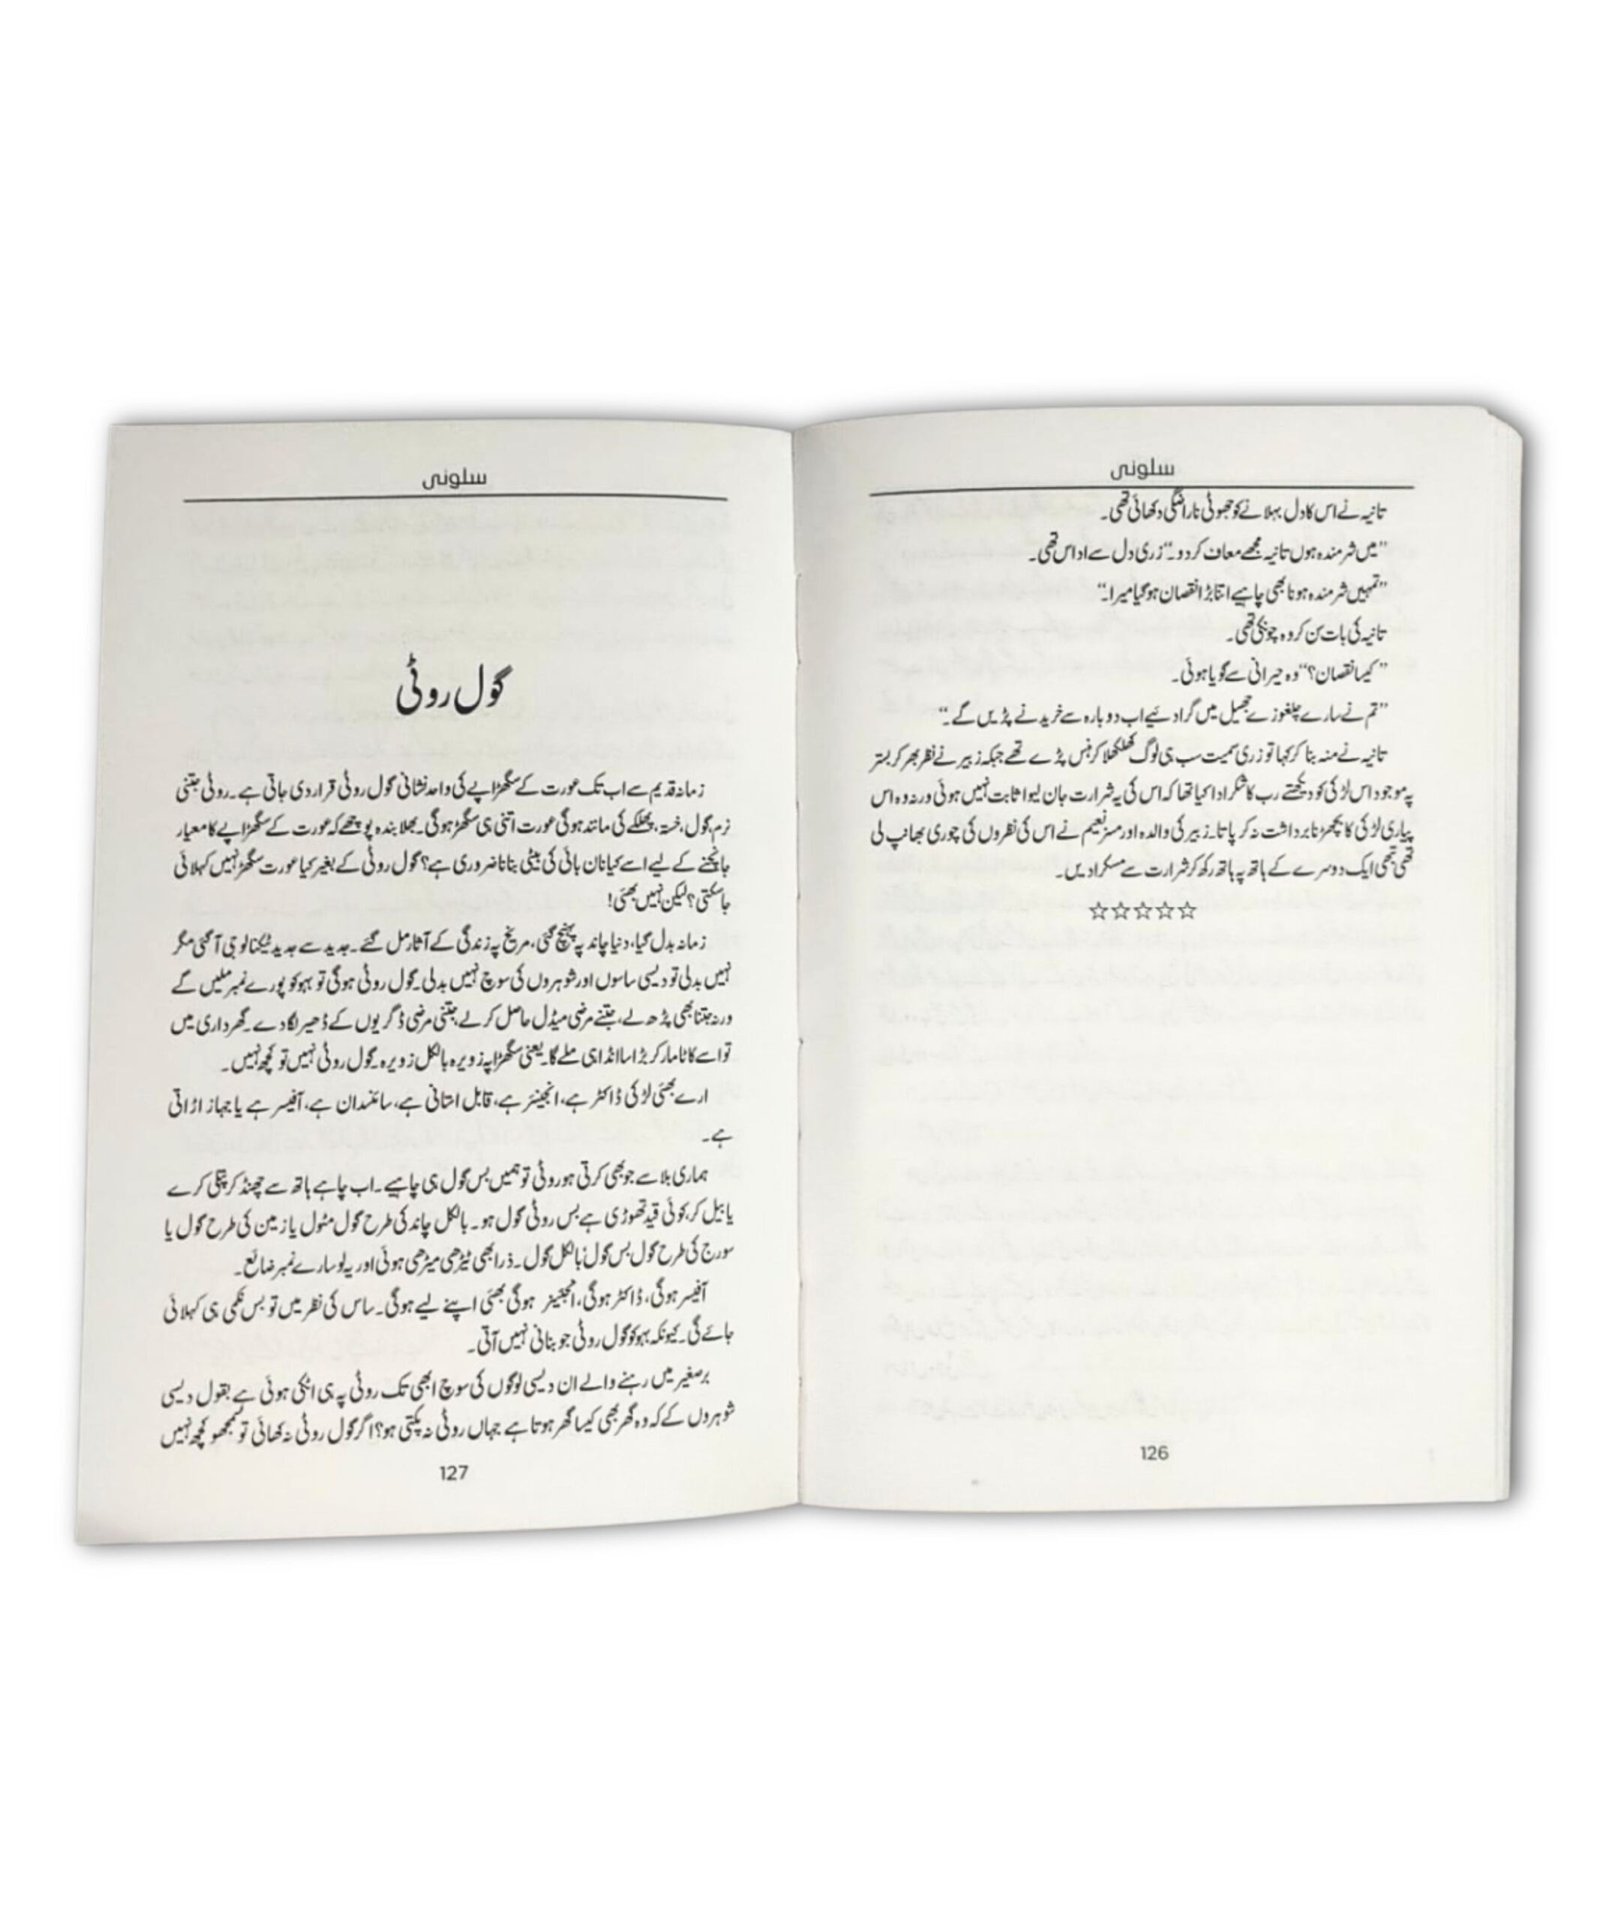 سلونی
تانیہ نے اس کا دل بہلانے کو جھوٹی ناراضگی دکھائی تھی۔
"میں شرمندہ ہوں تانیہ مجھے معاف کر دو۔" زری دل سے اداس تھی۔
"تمہیں شرمندہ ہونا بھی چاہیے اتنا بڑا نقصان ہو گیا میرا۔"
تانیہ کی بات سن کر وہ چونکی تھی۔
"کیسا نقصان؟" وہ حیرانی سے گویا ہوئی۔
"تم نے سارے چلغوزے جھیل میں گرا دئیے اب دوبارہ سے خریدنے پڑیں گے۔"
تانیہ نے منہ بنا کر کہا تو زری سمیت سب ہی لوگ کھلکھلا کر ہنس پڑے تھے جبکہ زبیر نے نظر بھر کر بستر
پہ موجود اس لڑکی کو دیکھتے رب کا شکر ادا کیا تھا کہ اس کی یہ شرارت جان لیوا ثابت نہیں ہوئی ورنہ وہ اس
پیاری لڑکی کا بچھڑنا برداشت نہ کر پاتا۔ زبیر کی والدہ اور مسز نعیم نے اس کی نظروں کی چوری بھانپ لی
تھی تبھی ایک دوسرے کے ہاتھ پہ ہاتھ رکھ کر شرارت سے مسکرا دیں۔
☆☆☆☆☆
126
سلونی
گول روٹی
زمانہ قدیم سے اب تک عورت کے سگھڑاپے کی واحد نشانی گول روٹی قرار دی جاتی ہے۔ روٹی جتنی
نرم، گول، خستہ، پھلکے کی مانند ہوگی عورت اتنی ہی سگھڑ ہوگی۔ بھلا بندہ پوچھے کہ عورت کے سگھڑاپے کا معیار
جانچنے کے لیے اسے کیا نان بائی کی بیٹی بنانا ضروری ہے؟ گول روٹی کے بغیر کیا عورت سگھڑ نہیں کہلائی
جا سکتی؟ لیکن نہیں بھئی!
زمانہ بدل گیا، دنیا چاند پہ پہنچ گئی، مریخ پہ زندگی کے آثار مل گئے۔ جدید سے جدید ٹیکنالوجی آ گئی مگر
نہیں بدلی تو دیسی ساسوں اور شوہروں کی سوچ نہیں بدلی۔ گول روٹی ہوگی تو بہو کو پورے نمبر ملیں گے
ورنہ جتنا بھی پڑھ لے، جتنے مرضی میڈل حاصل کر لے، جتنی مرضی ڈگریوں کے ڈھیر لگا دے۔ گھر داری میں
تو اسے کاٹا مار کر بڑا سا انڈا ہی ملے گا۔ یعنی سگھڑاپہ زویرہ بالکل زویرہ۔ گول روٹی نہیں تو کچھ نہیں۔
ارے بھئی لڑکی ڈاکٹر ہے، انجینئر ہے، قابل استانی ہے، سائنسدان ہے، آفیسر ہے یا جہاز اڑاتی
ہے۔
ہماری بلا سے جو بھی کرتی ہو روٹی تو ہمیں بس گول ہی چاہیے۔ اب چاہے ہاتھ سے چھنڈ کر پتلی کرے
یا بیل کر، کوئی قید تھوڑی ہے بس روٹی گول ہو۔ بالکل چاند کی طرح گول مٹول یا زمین کی طرح گول یا
سورج کی طرح گول بس گول، بالکل گول۔ ذرا بھی ٹیڑھی میڑھی ہوئی اور یہ لو سارے نمبر ضائع۔
آفیسر ہوگی، ڈاکٹر ہوگی، انجینئر ہوگی بھئی اپنے لیے ہوگی۔ ساس کی نظر میں تو بس نکمی ہی کہلائی
جائے گی۔ کیونکہ بہو کو گول روٹی جو بنانی نہیں آتی۔
برصغیر میں رہنے والے ان دیسی لوگوں کی سوچ ابھی تک روٹی پہ ہی اٹکی ہوئی ہے بقول دیسی
شوہروں کے کہ وہ گھر بھی کیسا گھر ہوتا ہے جہاں روٹی نہ پکتی ہو؟ اگر گول روٹی نہ کھائی تو سمجھو کچھ نہیں
127